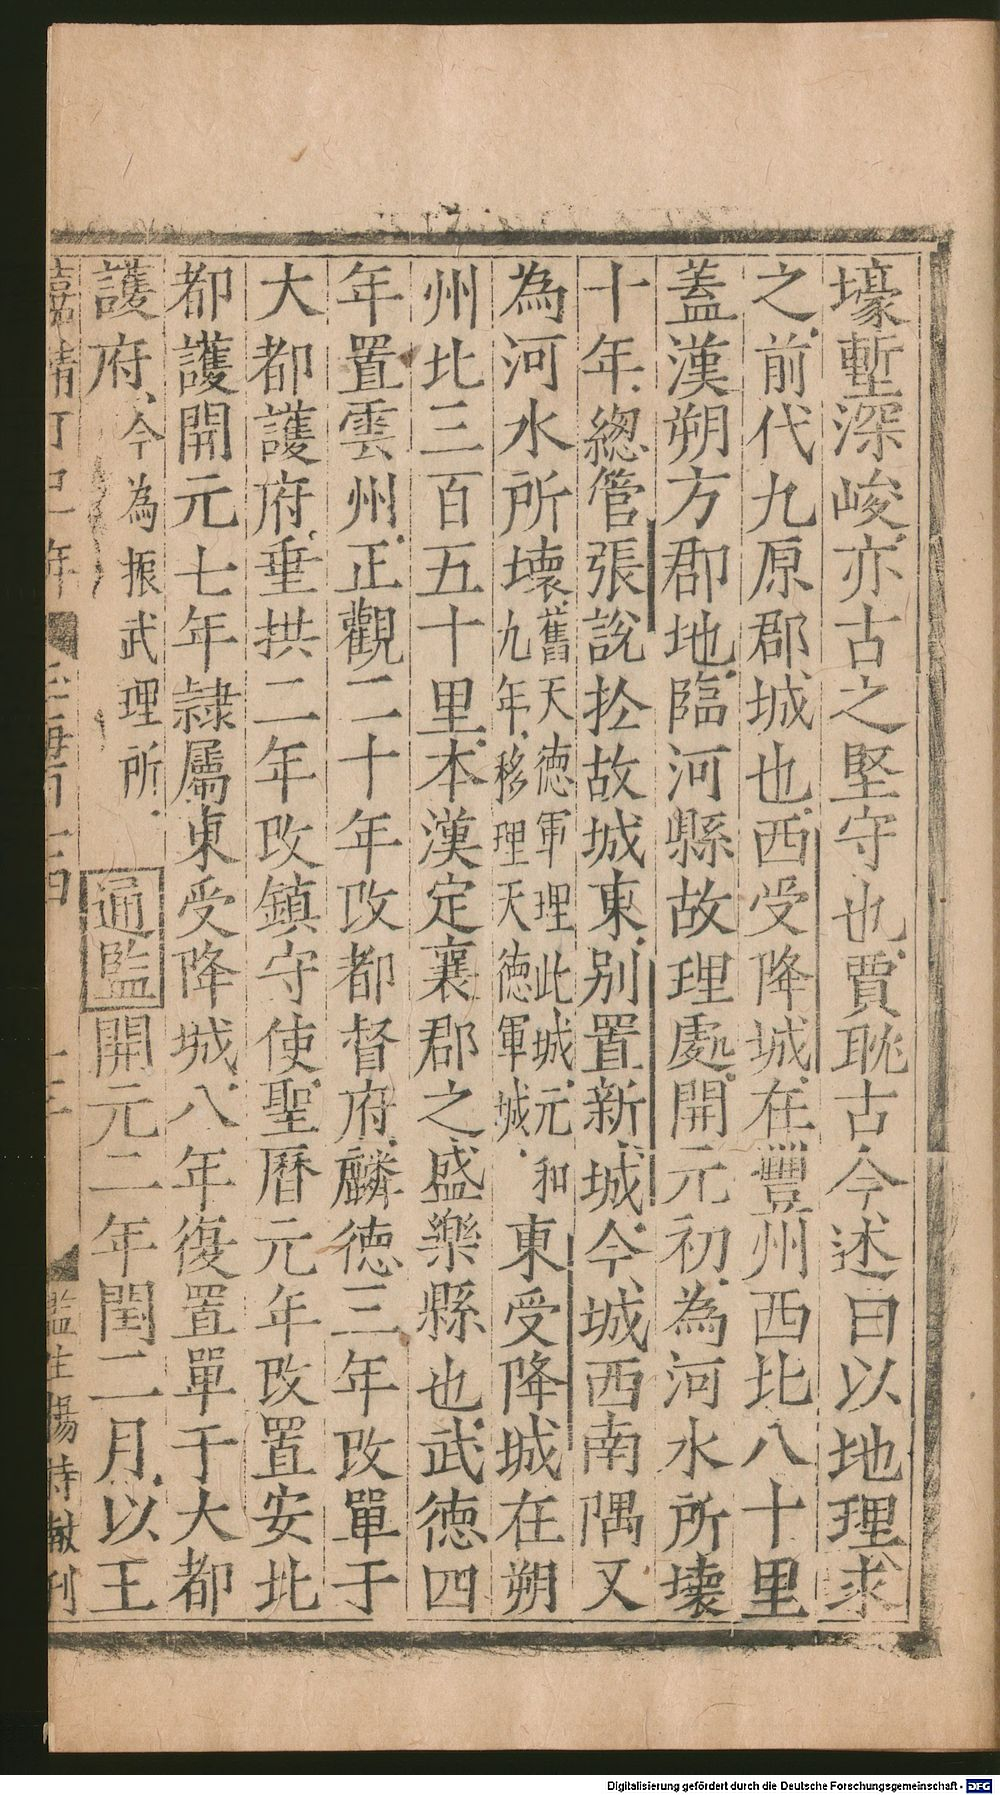 壕塹深峻亦古之堅守也賈耽古今述曰以地理求
之前代九原郡城也西受降城在豐州西北八十里
蓋漢朔方郡地臨河縣故理處開元初為河水所壞
十年總管張說扵故城東別置新城今城西南隅又
為河水所壞舊天德軍理此城元和九年移理天德軍城東受降城在朔
州北三百五十里本漢定襄郡之盛樂縣也武德四
年置雲州正觀二十年改都督府麟德三年改單于
大都護府垂拱二年改鎮守使聖曆元年改置安北
都護開元七年隸屬東受降城八年復置單于大都
護府今為振武理所通監開元二年閏二月以王
Digitalisierung gefördert durch die Deutsche Forschungsgemeinschaft - DFG